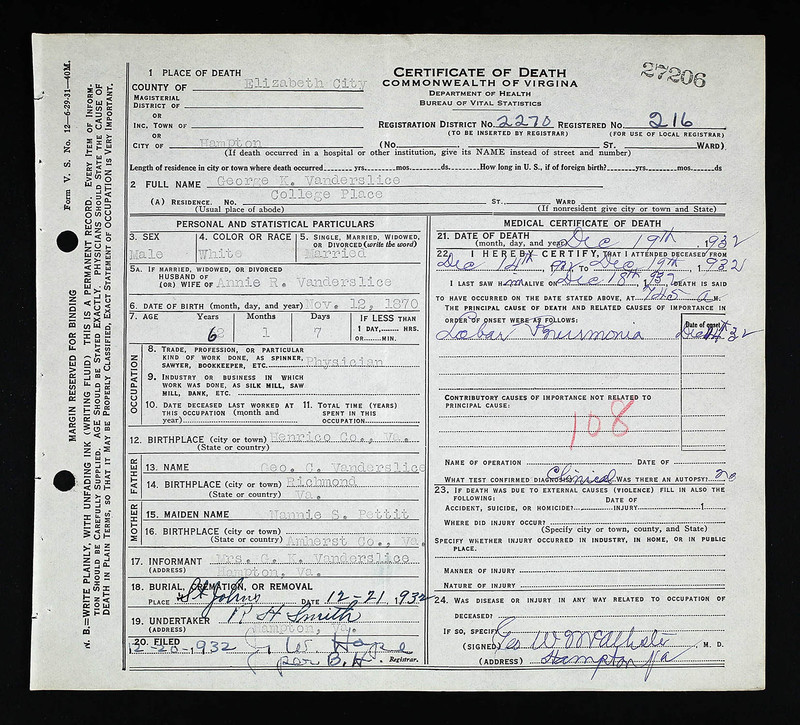 27206
1 PLACE OF DEATH
COUNTY OF Elizabeth City
MAGISTERIAL
DISTRICT OF
OR
INC. TOWN OF
OR
CITY OF Hampton (No. ST. WARD)
(If death occurred in a hospital or other institution, give its NAME instead of street and number)
CERTIFICATE OF DEATH
COMMONWEALTH OF VIRGINIA
DEPARTMENT OF HEALTH
BUREAU OF VITAL STATISTICS
REGISTRATION DISTRICT NO. 2270 REGISTERED NO. 216
(TO BE INSERTED BY REGISTRAR) (FOR USE OF LOCAL REGISTRAR)
Length of residence in city or town where death occurred yrs. mos. ds. How long in U. S., if of foreign birth? yrs. mos. ds
2 FULL NAME George K. Vanderslice
(A) RESIDENCE. No. College Place ST. WARD
(Usual place of abode) (If nonresident give city or town and State)
PERSONAL AND STATISTICAL PARTICULARS
3. SEX Male
4. COLOR OR RACE White
5. SINGLE, MARRIED, WIDOWED, OR DIVORCED (write the word) Married
5A. IF MARRIED, WIDOWED, OR DIVORCED
HUSBAND OF
(OR) WIFE OF Annie R. Vanderslice
6. DATE OF BIRTH (month, day, and year) Nov. 12, 1870
7. AGE Years Months Days IF LESS THAN
62 1 7 1 DAY, HRS.
OR MIN.
OCCUPATION
8. TRADE, PROFESSION, OR PARTICULAR
KIND OF WORK DONE, AS SPINNER,
SAWYER, BOOKKEEPER, ETC. Physician
9. INDUSTRY OR BUSINESS IN WHICH
WORK WAS DONE, AS SILK MILL, SAW
MILL, BANK, ETC.
10. DATE DECEASED LAST WORKED AT
THIS OCCUPATION (month and
year)
11. TOTAL TIME (YEARS)
SPENT IN THIS
OCCUPATION
12. BIRTHPLACE (city or town) Henrico Co., Va.
(State or country)
FATHER
13. NAME Geo. C. Vanderslice
14. BIRTHPLACE (city or town) Richmond
(State or country) Va.
MOTHER
15. MAIDEN NAME Mannie S. Pettit
16. BIRTHPLACE (city or town)
(State or country) Amherst Co., Va.
17. INFORMANT Mrs. G. K. Vanderslice
(ADDRESS) Hampton, Va.
18. BURIAL, CREMATION, OR REMOVAL
PLACE St Johns DATE 12-21, 1932
19. UNDERTAKER R H Smith
(ADDRESS) Hampton, Va.
20. FILED
12-20-1932 W. Hope
per B.H. Registrar.
MEDICAL CERTIFICATE OF DEATH
21. DATE OF DEATH
(month, day, and year) Dec 19th, 1932
22. I HEREBY CERTIFY, THAT I ATTENDED DECEASED FROM
Dec 14th, 1932 TO Dec 19th, 1932
I LAST SAW H im ALIVE ON Dec 18th, 1932, DEATH IS SAID
TO HAVE OCCURRED ON THE DATE STATED ABOVE, AT 745 a M.
THE PRINCIPAL CAUSE OF DEATH AND RELATED CAUSES OF IMPORTANCE IN
ORDER OF ONSET WERE AS FOLLOWS: Date of onset
Lobar Pneumonia
CONTRIBUTORY CAUSES OF IMPORTANCE NOT RELATED TO
PRINCIPAL CAUSE:
108
NAME OF OPERATION DATE OF
WHAT TEST CONFIRMED DIAGNOSIS? Clinical WAS THERE AN AUTOPSY? no
23. IF DEATH WAS DUE TO EXTERNAL CAUSES (VIOLENCE) FILL IN ALSO THE
FOLLOWING: DATE OF
ACCIDENT, SUICIDE, OR HOMICIDE? INJURY 1
WHERE DID INJURY OCCUR?
(Specify city or town, county, and State)
SPECIFY WHETHER INJURY OCCURRED IN INDUSTRY, IN HOME, OR IN PUBLIC
PLACE.
MANNER OF INJURY
NATURE OF INJURY
24. WAS DISEASE OR INJURY IN ANY WAY RELATED TO OCCUPATION OF
DECEASED?
IF SO, SPECIFY
(SIGNED) Geo W M. D.
(ADDRESS) Hampton Va
Form V. S. No. 12—6-29-31—40M.
MARGIN RESERVED FOR BINDING
N. B.—WRITE PLAINLY, WITH UNFADING INK (WRITING FLUID) THIS IS A PERMANENT RECORD. EVERY ITEM OF INFORMATION SHOULD BE CAREFULLY SUPPLIED. AGE SHOULD BE STATED EXACTLY. PHYSICIANS SHOULD STATE THE CAUSE OF DEATH IN PLAIN TERMS, SO THAT IT MAY BE PROPERLY CLASSIFIED, EXACT STATEMENT OF OCCUPATION IS VERY IMPORTANT.